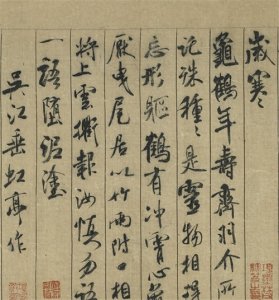 歲寒
龜鶴年壽齊羽介所
託殊種〻是靈物相得
忘形軀鶴有沖霄心龜
厭曳尾居以竹兩附口相
將上雲衢報汝慎勿語
一語墮泥塗
吳江垂虹亭作